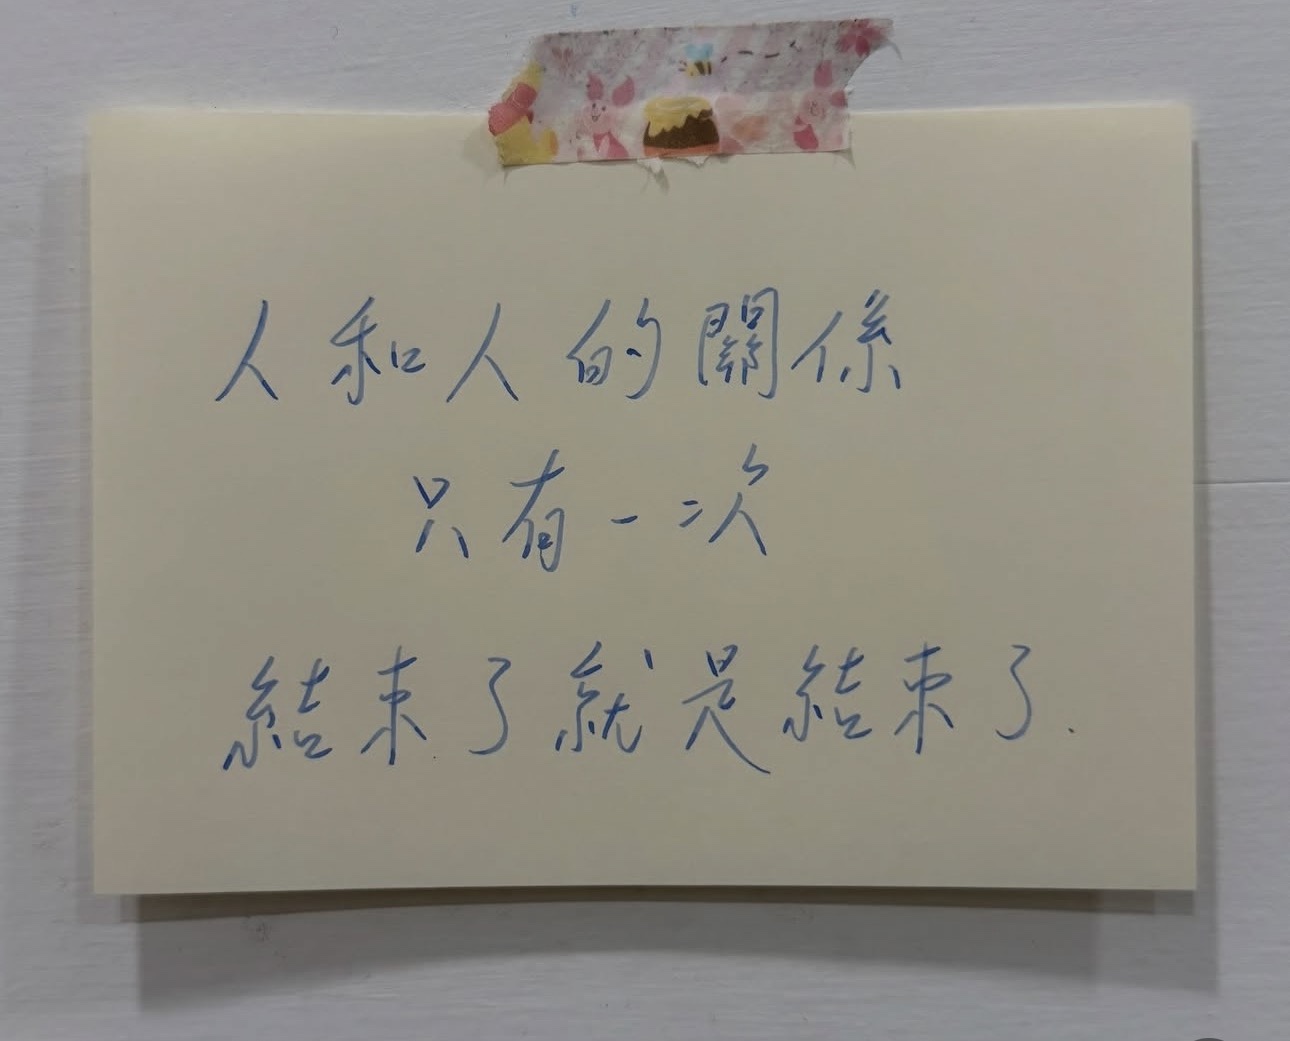 人和人的關係
只有一次
結束了就是結束了.